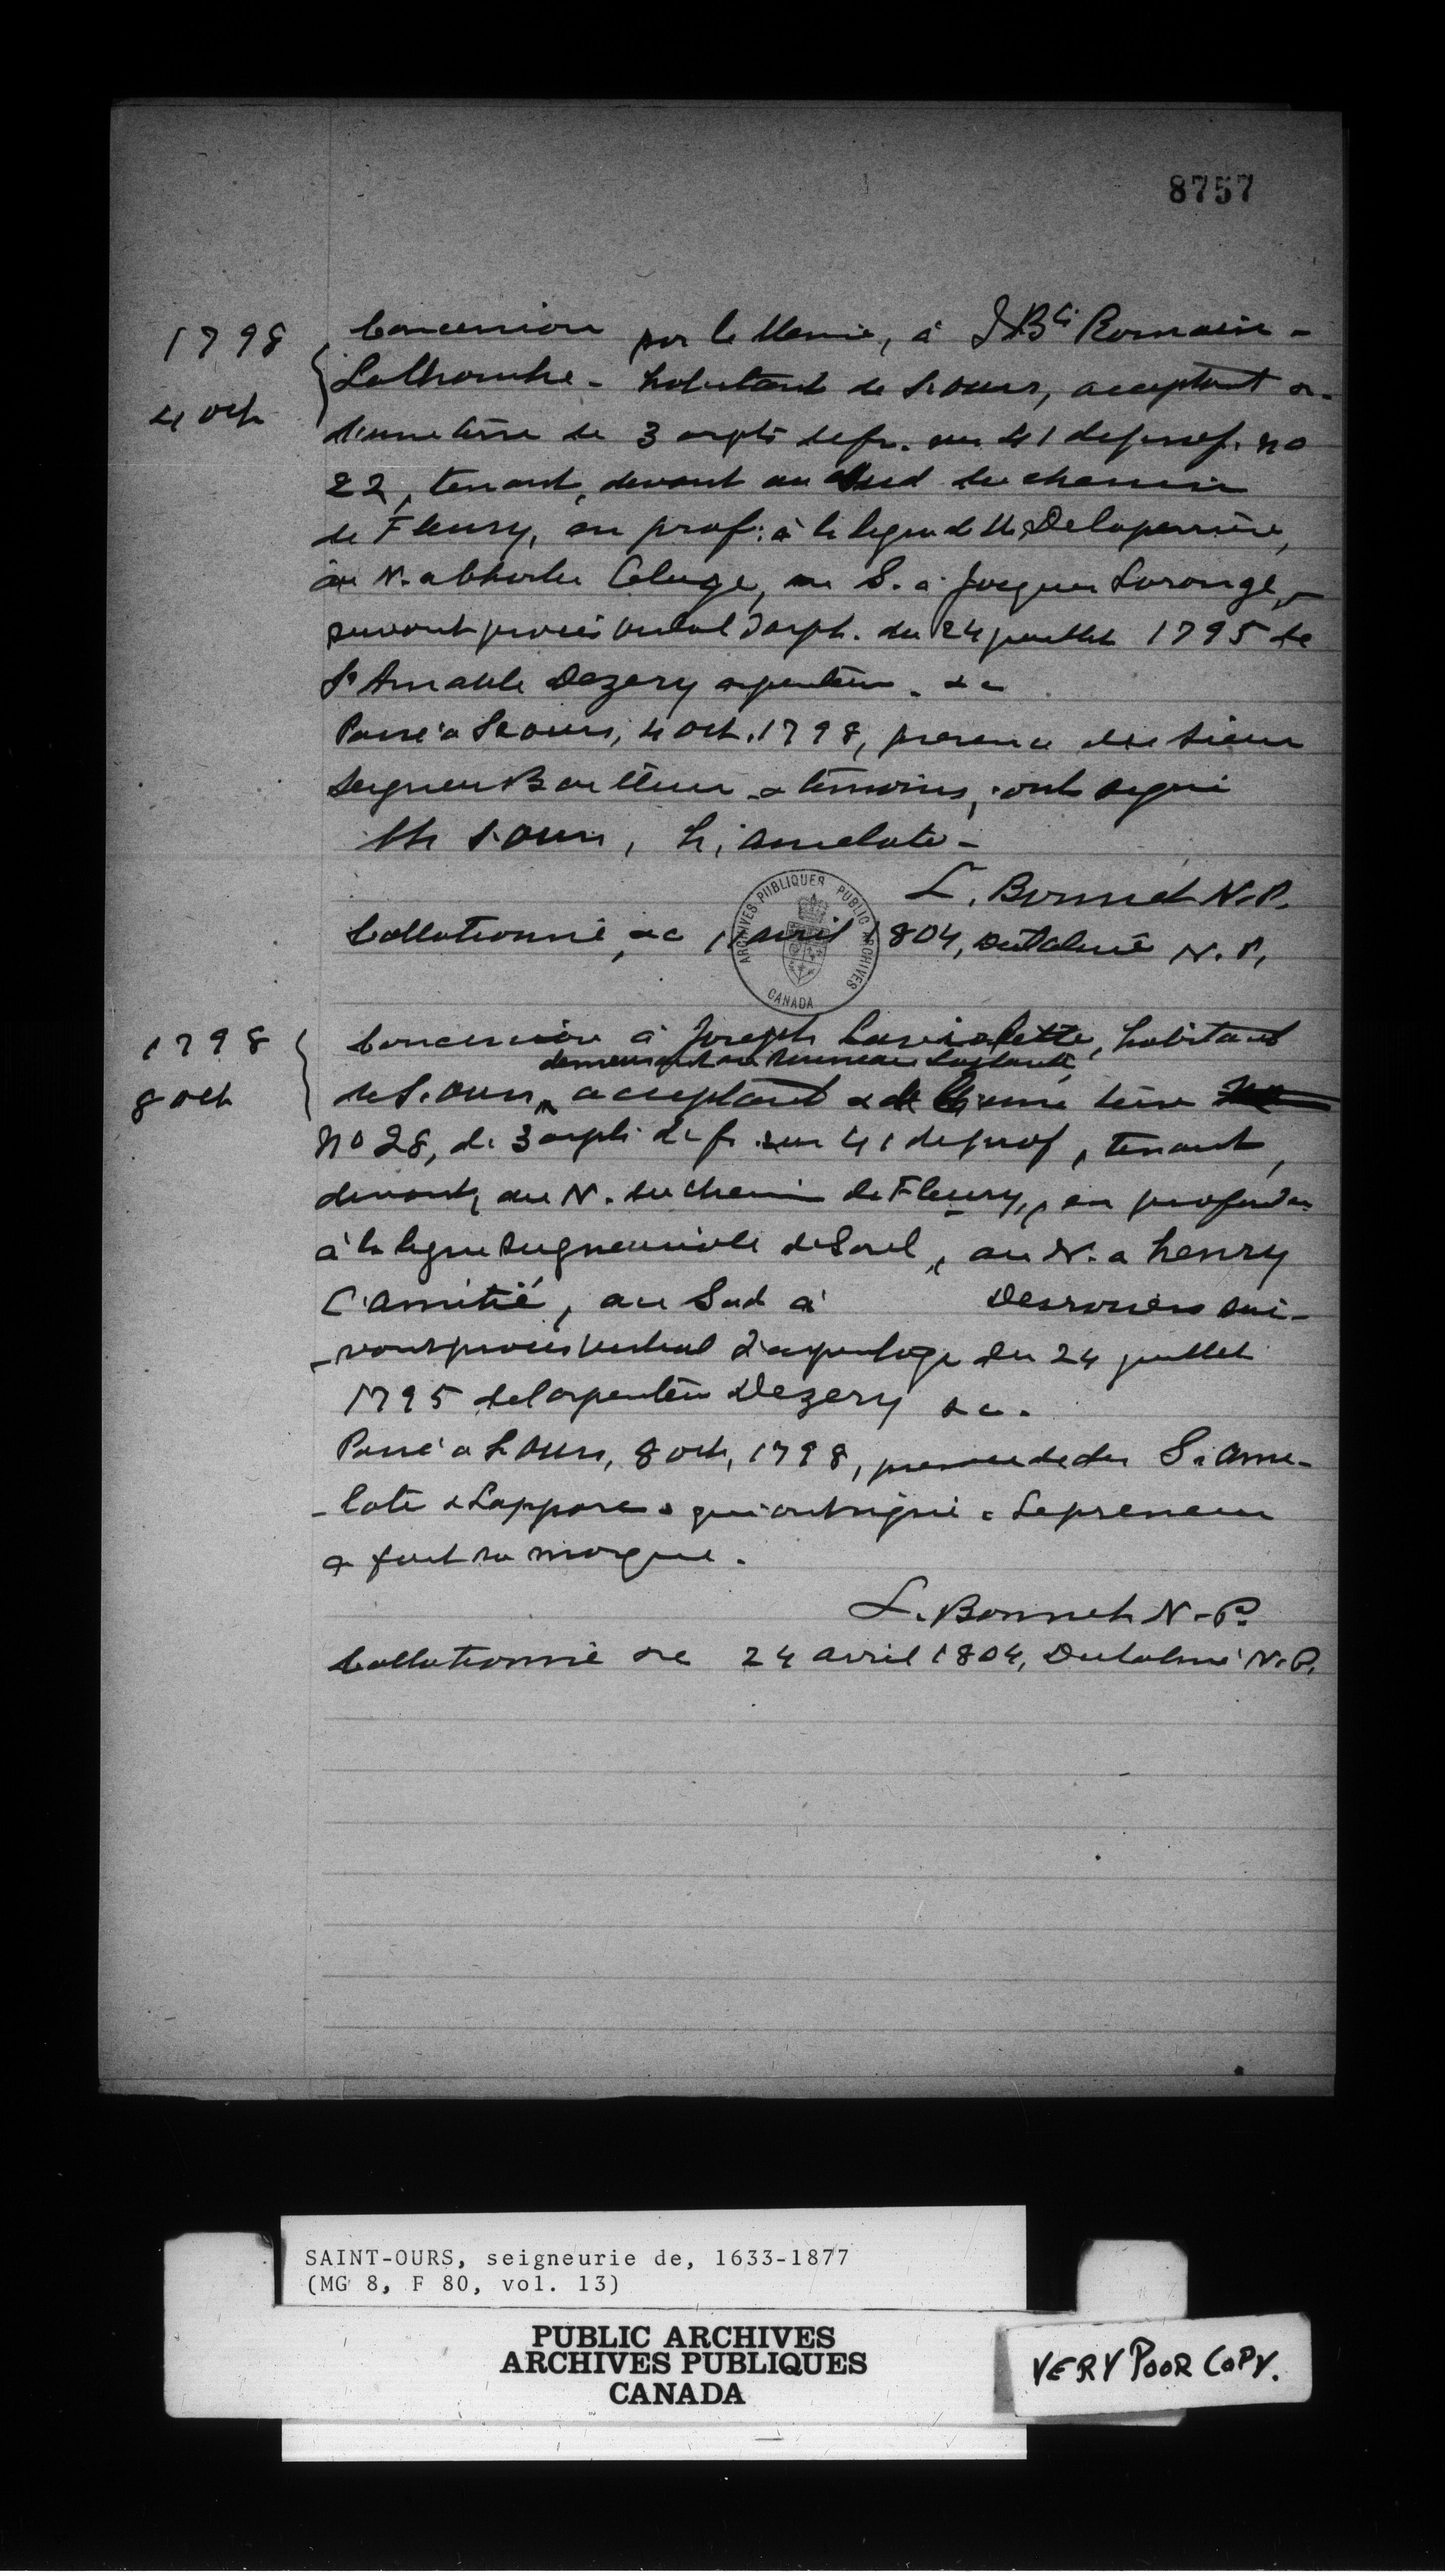 8757
1798
4 oct
Concession par le Même, à J Bte Romain-
Lathrombe - habitant de St Ours, acceptant &.
d'une terre de 3 arpts de fr. sur 41 de prof. no
22, tenant, devant au Sud du chemin
de Fleury, en prof: à la ligne de M. Delaperrière,
au N. à Charles Caluge, au S. à Jacques Laronge,
suivant procès verbal d'arpt. du 24 juillet 1795 de
Sr Amable Dezery arpenteur. &c
Passé à St Ours, 4 oct. 1798, presence du sieur
Seigneur Bailleur & témoins, ont signé
Ch St Ours, h. amelote-
L. Bonnet N.P.
Collationné, &c 11 avril 1804, Dutalmé N.P.
ARCHIVES PUBLIQUES PUBLIC ARCHIVES
CANADA
1798
8 oct
Concession à Joseph Laviolette, habitant
demeurant au
de St. Ours, acceptant & d'une terre
no 28, de 3 arpts de fr. sur 41 de prof, tenant,
devant, au N. du chemin de Fleury, en profondr
à la ligne seigneuriale de Sorel, au N. à henry
L'amitié, au Sud à Desrosiers sui-
-vant procès verbal d'arpentage du 24 juillet
1795 de l'arpenteur Dezery &c.
Passé à St Ours, 8 oct, 1798, presence de Srs Ame-
-lote & Lappare qui ont signé & le preneur
a fait sa marque.
L. Bonnet N.P.
Collationné &c 24 avril 1804, Dutalmé N.P.
SAINT-OURS, seigneurie de, 1633-1877
(MG 8, F 80, vol. 13)
PUBLIC ARCHIVES
ARCHIVES PUBLIQUES
CANADA
VERY POOR COPY.